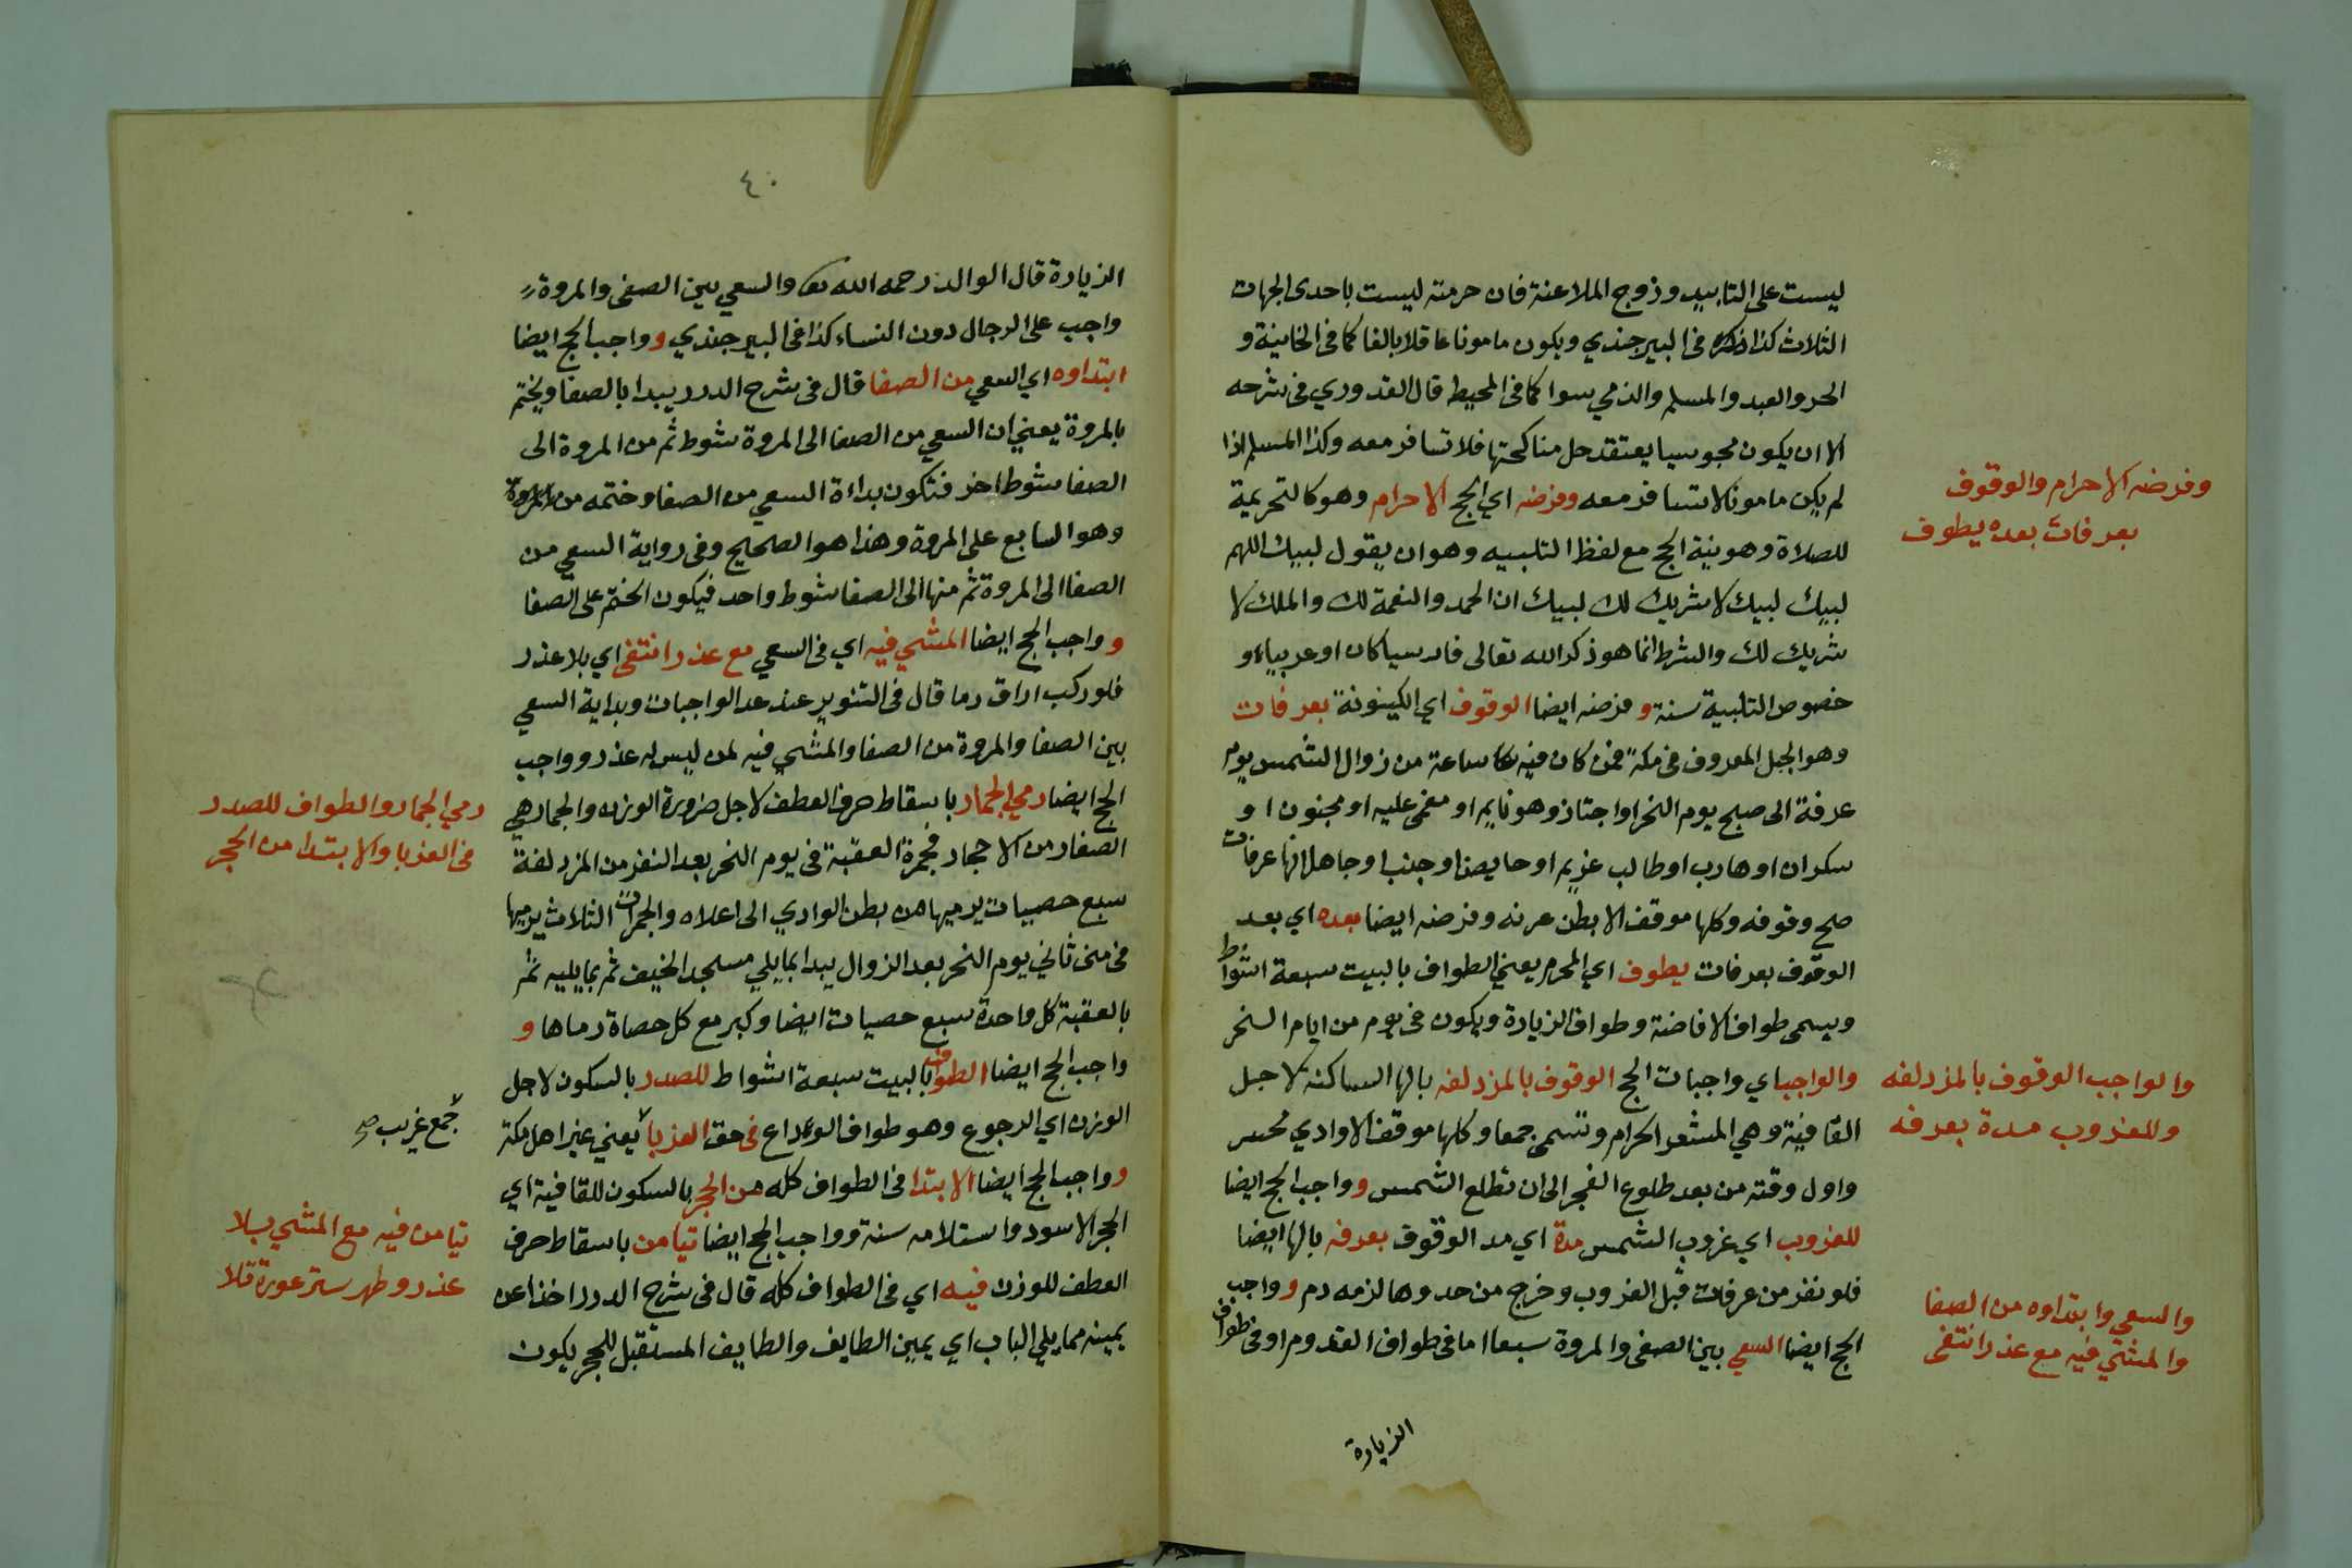 ليست على التابيد وزوج الملاعنة فان حرمته ليست باحدى الجهات
الثلاث كذا ذكره فى البيرجندي ويكون مامونا عاقلا بالغا كما فى الخانية و
الحر والعبد والمسلم والذمي سوا كما فى المحيط قال القدوري فى شرحه
الا ان يكون مجوسيا يعتقد حل مناكحتها فلا تسافر معه وكذا المسلم اذا
لم يكن مامونا لا تسافر معه وفرضه اي الحج الاحرام وهو كالتحريمة
للصلاة وهو نية الحج مع لفظ التلبيه وهو ان يقول لبيك اللهم
لبيك لبيك لا شريك لك لبيك ان الحمد والنعمة لك والملك لا
شريك لك والشرط انما هو ذكر الله تعالى فارسيا كان او عربيا و
خصوص التلبية سنة و فرضه ايضا الوقوف اي الكينونة بعرفات
وهو الجبل المعروف فى مكة فمن كان فيه ساعة من زوال الشمس يوم
عرفة الى صبح يوم النحر او اجتاز وهو نايم او مغمى عليه او مجنون او
سكران او هارب او طالب غريم او حايض او جنب او جاهل انها عرفات
صح وقوفه وكلها موقف الا بطن عرنه وفرضه ايضا بعده اي بعد
الوقوف بعرفات يطوف اي المحرم يعني الطواف بالبيت سبعة اشواط
ويسمى طواف الافاضة وطواف الزيارة ويكون فى يوم من ايام النحر
والواجب اي واجبات الحج الوقوف بالمزدلفه بالها الساكنة لاجل
القافية وهي المشعر الحرام وتسمى جمعا وكلها موقف الا وادي محسر
واول وقته من بعد طلوع الفجر الى ان تطلع الشمس و واجب الحج ايضا
للغروب اي غروب الشمس مدة اي مد الوقوف بعرفه بالها ايضا
فلو نفر من عرفات قبل الغروب وخرج من حدوها لزمه دم و واجب
الحج ايضا السعي بين الصفى والمروة سبعا اما فى طواف القدوم او فى طواف
الزيارة
وفرضه الاحرام والوقوف
بعرفات بعده يطوف
والواجب الوقوف بالمزدلفه
وللغروب مدة بعرفه
والسعي وابتداوه من الصفا
والمشي فيه مع عذر انتفى
٤٠
الزيارة قال الوالد رحمه الله والسعي بين الصفى والمروة
واجب على الرجال دون النساء كذا فى البيرجندي و واجب الحج ايضا
ابتداوه اي السعي من الصفا قال فى شرح الدرر يبدا بالصفا ويختم
بالمروة يعني ان السعي من الصفا الى المروة شوط ثم من المروة الى
الصفا شوط اخر فتكون بداءة السعي من الصفا وختمه من المروة
وهو السابع على المروة وهذا هو الصحيح وفى رواية السعي من
الصفا الى المروة ثم منها الى الصفا شوط واحد فيكون الختم على الصفا
و واجب الحج ايضا المشي فيه اي فى السعي مع عذر انتفى اي بلا عذر
فلو ركب اراق دما قال فى التنوير عند عد الواجبات وبداية السعي
بين الصفا والمروة من الصفا والمشي فيه لمن ليس له عذر وواجب
الحج ايضا رمي الجمار باسقاط حرف العطف لاجل ضرورة الوزن والجمار هي
الصغار من الاحجار فجمرة العقبة فى يوم النحر بعد النفر من المزدلفة
سبع حصيات يرميها من بطن الوادي الى اعلاه والجمرات الثلاث يرميها
فى منى ثاني يوم النحر بعد الزوال يبدا بما يلي مسجد الخيف ثم بما يليه ثم
بالعقبة كل واحدة سبع حصيات ايضا وكبر مع كل حصاة رماها و
واجب الحج ايضا الطواف بالبيت سبعة اشواط للصدر بالسكون لاجل
الوزن اي الرجوع وهو طواف الوداع فى حق الغربا يعني غير اهل مكة
و واجب الحج ايضا الابتدا فى الطواف كله من الحجر بالسكون للقافية اي
الحجر الاسود واستلامه سنة وواجب الحج ايضا تيامن باسقاط حرف
العطف للوزن فيه اي فى الطواف كله قال فى شرح الدرر اخذا عن
يمينه مما يلي الباب اي يمين الطايف والطايف المستقبل للحجر يكون
رمي الجمار والطواف للصدر
فى الغربا والابتدا من الحجر
جمع غريب صح
تيامن فيه مع المشي بلا
عذر وطهر ستر عورة تلا